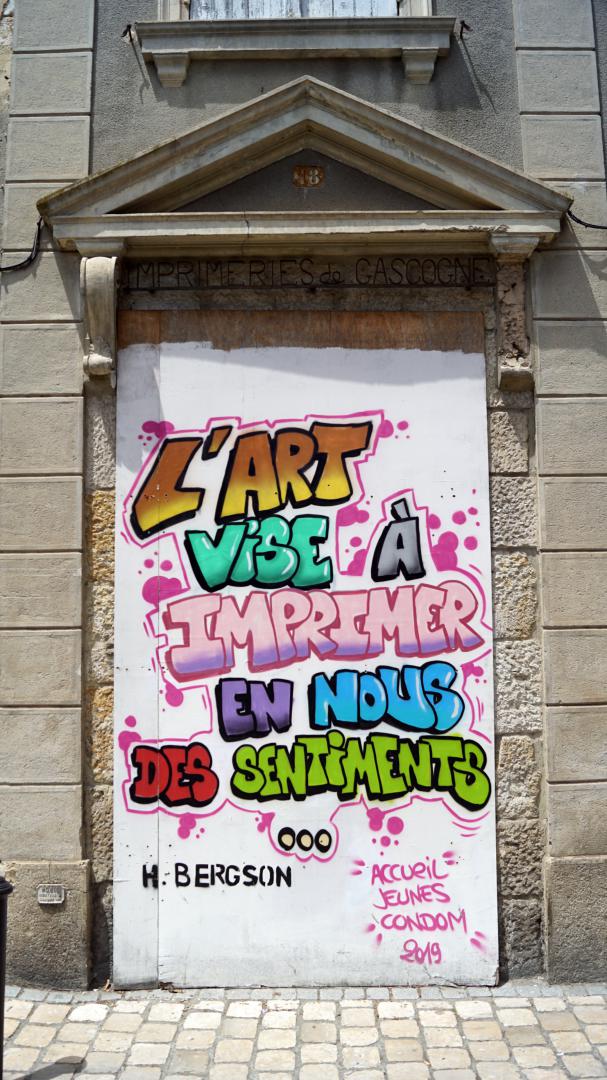 18
IMPRIMERIES de GASCOGNE
L'ART
VISE À
IMPRIMER
EN NOUS
DES SENTIMENTS
...
H. BERGSON
ACCUEIL
JEUNES
CONDOM
2019